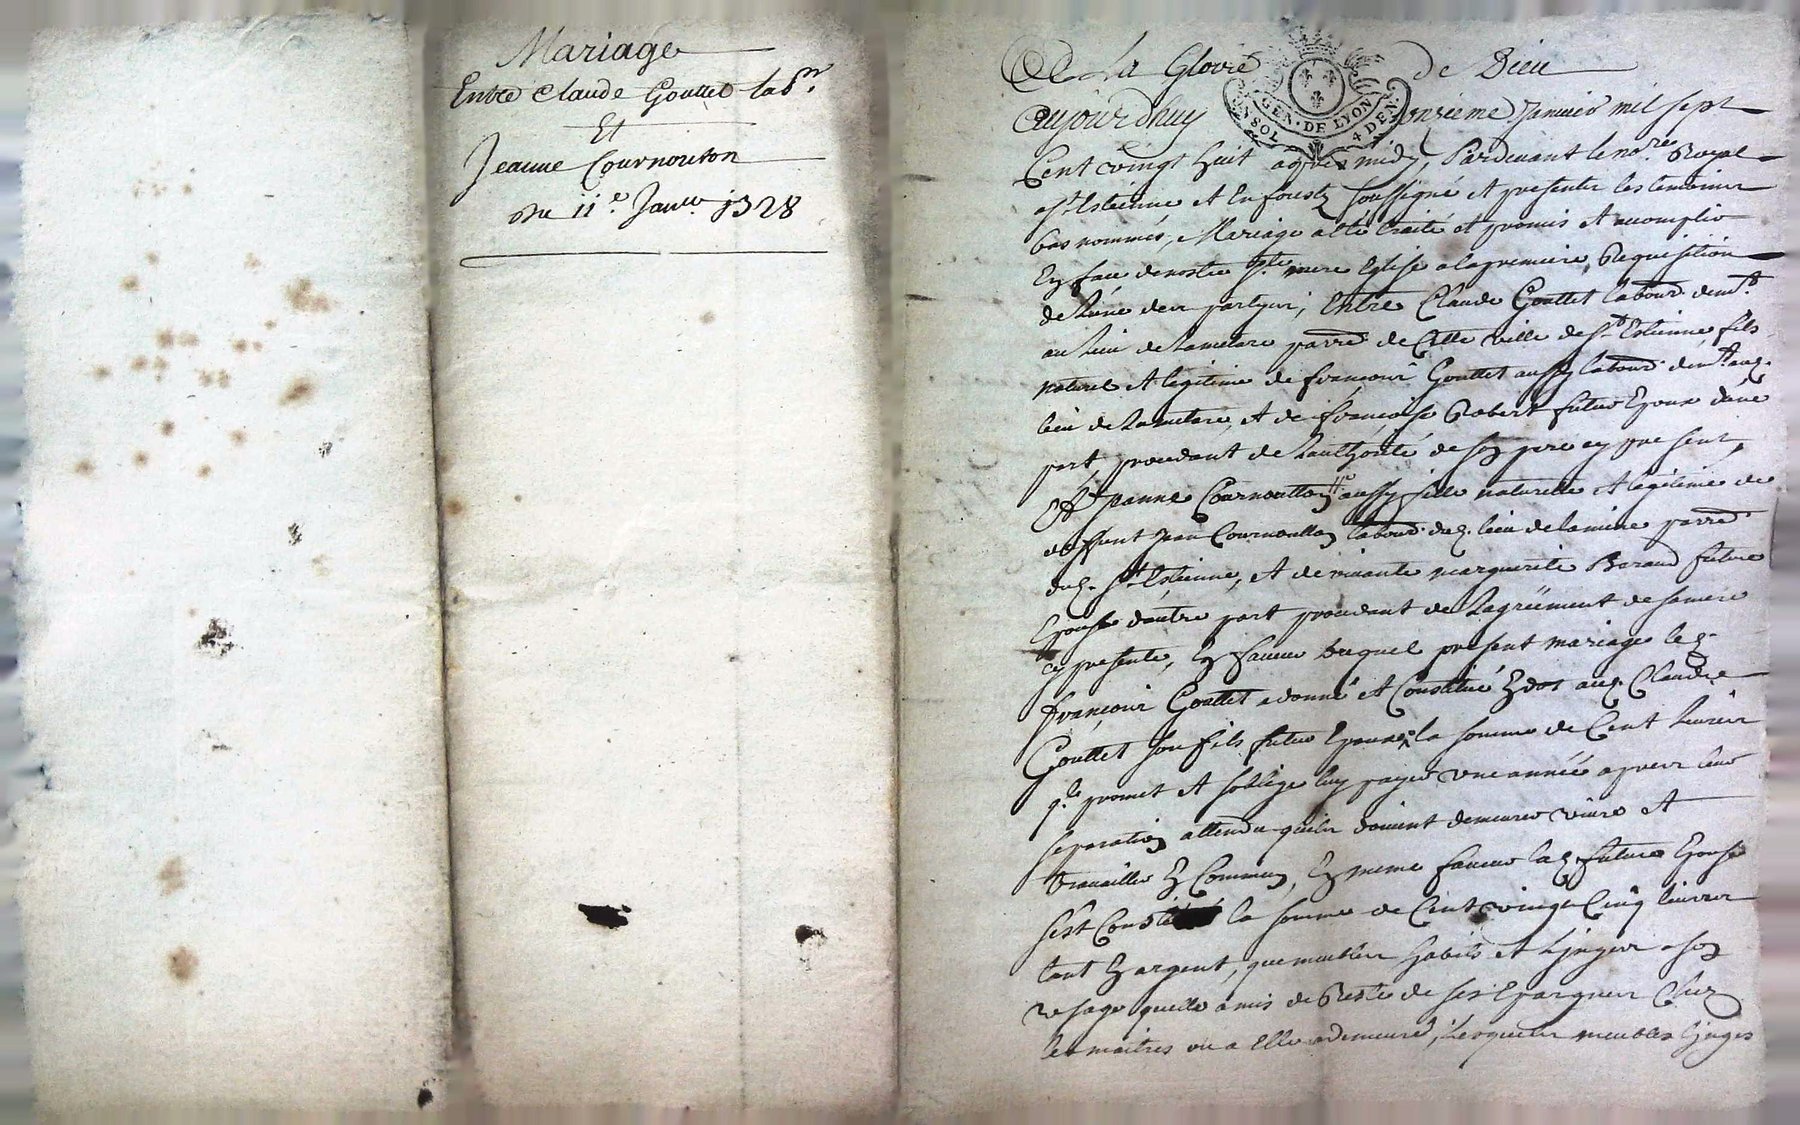 Mariage
Entre Claude Gouttet lab.r
Et
Jeanne Cournouton
Du 11.e Janv.r 1728
A La Gloire de Dieu
GEN. DE LYON
SOL 4 DEN.
Aujourdhuy onzieme Janvier mil sept
Cent vingt huit apres midy, Pardevant le no.re Royal
a St Estienne et En foretz soussigné et presents les temoins
bas nommés, Mariage a été traité et promis et accomplir
En face de nostre Ste mere Eglise a la premiere Requisition
de Lune des partyes, Entre Claude Gouttet labour. dem.t
au lieu de Lametare parre de Cette ville de St Estienne fils
naturel et legitime de françois Gouttet aussy labour. dem.t aud.
lieu de Lametare, et de françoise Robert futur Epoux dune
part, procedant de Lauthorité de son pere cy present,
Et Jeanne Cournoutton aussy fille naturelle et legitime de
deffunt Jean Cournoutton labour. dud. lieu de lamine parre
dud. St Estienne, et de vivante marguerite Barand future
Epouse dautre part procedant de Lagréément de sa mere
cy presente, En faveur duquel present mariage led.
françois Gouttet a donné et Constitué En dot aud. Claude
Gouttet son fils futur Epoux la somme de Cent Livres
q.le promet et soblige luy payer une année apres leur
separation attendu quils doivent demeurer vivre et
travailler En Commun, En meme faveur lad. future Epouse
sest Constitué la somme de Cent vingt Cinq livres
tant En argent, que meubles habits et Linges a son
usage quelle a mis de Reste de ses Epargnes Chez
les maitres ou a Elle a demeuré, Lesquels meubles Linges